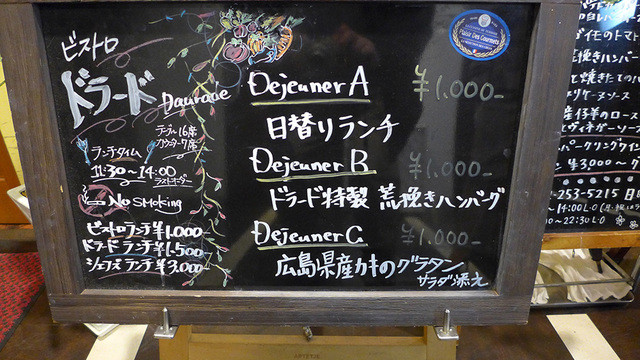 ビストロ
ドラード
Daurade
テーブル16席
カウンター7席
ランチタイム
11:30~14:00
ラストオーダー
No Smoking
ビストロランチ¥1.000
ドラードランチ¥1.500
シェフズランチ¥3.000
Dejeuner A ¥1.000-
日替りランチ
Dejeuner B ¥1.000-
ドラード特製 荒挽きハンバーグ
Dejeuner C ¥1.000-
広島県産カキのグラタン
サラダ添え
Plaisir Des Gourmets
イモのトマト
挽きハンバー
と焼きたての
リケーヌソース
産仔羊のロース
ヴィネガーソー
パークリングワイン
¥3,000~
-253-5215
14:00 L.O
~22:30 L.O